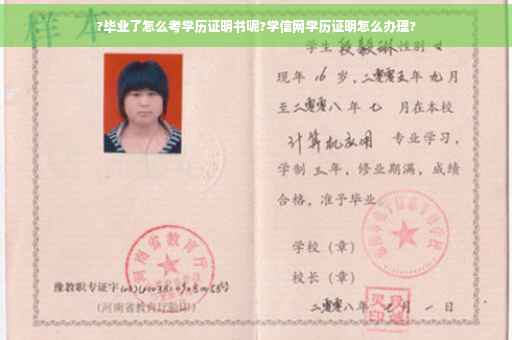 ?毕业了怎么考学历证明书呢?学信网学历证明怎么办理?
样本
学生 段毅琳 性别 女
现年 16 岁，二零零五年 九月
至二零零八年 七 月在本校
计算机应用 专业学习，
学制 三年，修业期满，成绩
合格，准予毕业
学校（章）
校长（章）
二零零八年 七 月 一 日
河南省教育厅
豫教职专证字
(河南省教育厅验印)